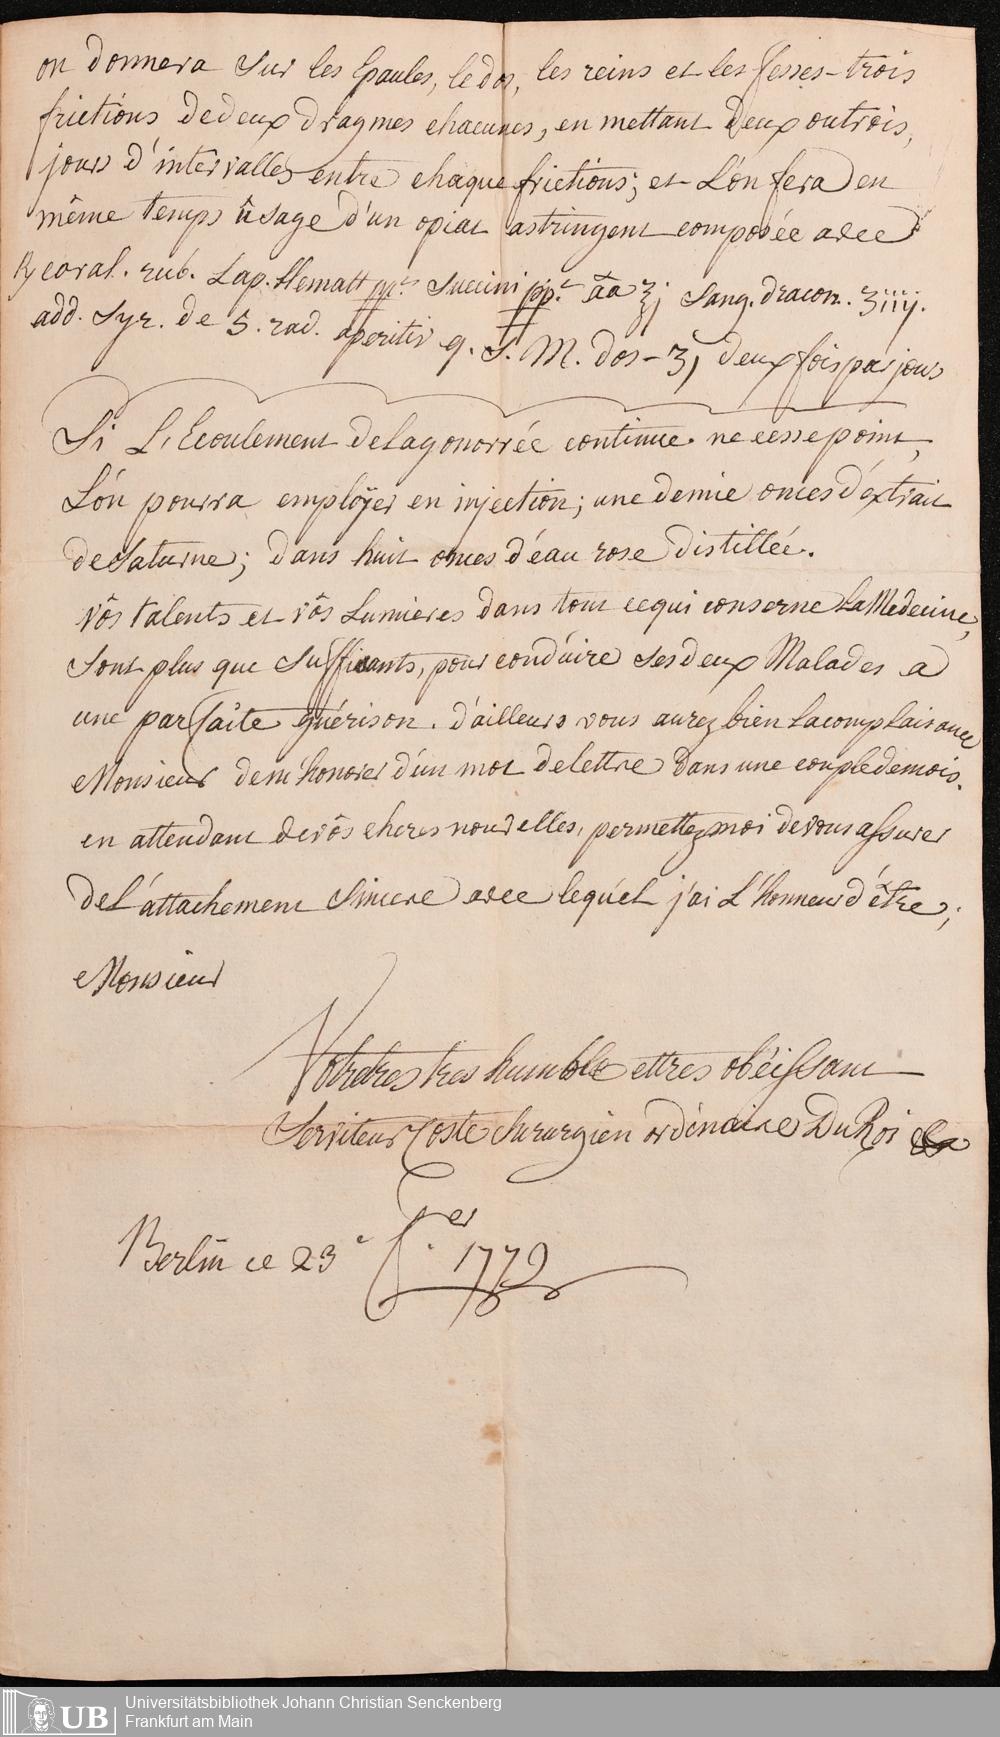 on donnera sur les Epaules, le dos, les reins et les fesses - trois
frictions de deux dragmes chacunes, en mettant deux ou trois,
jours d'intervalles entre chaque frictions; et L'on fera en
même temps üsage d'un opiat astringent composée avec
℞ coral. rub. Lap. Hematt ppt. Succini ppt. āā ʒj Sang. dracon. ʒiiij.
add. Syr. de 5. rad. aperitiv q. S. M. dos - ʒj deux fois par jours
Si L'Ecoulement de La gonorrée continue ne cesse point,
L'on pourra employër en injection; une demie onces d'extrait
de saturne; dans huit onces d'éau rose distillée.
vôs talents et vôs Lumieres dans tout ce qui conserne La Medecine,
sont plus que suffisants, pour condüire ses deux Malades a
une parfaîte guérison. d'ailleurs vous aurez bien la complaisance
Monsieur de m honorer d'un mot de lettre dans une couple de mois.
en attendant de vôs cheres nouvelles, permettez moi de vous assurer
de L'attachement sincere avec lequel j'ai L'honneur d'être;
Monsieur
Votre tres humble et tres obéissant
Serviteur Coste chirurgien ordinaire Du Roi
Berlin ce 23e 1779
Universitätsbibliothek Johann Christian Senckenberg
Frankfurt am Main
UB